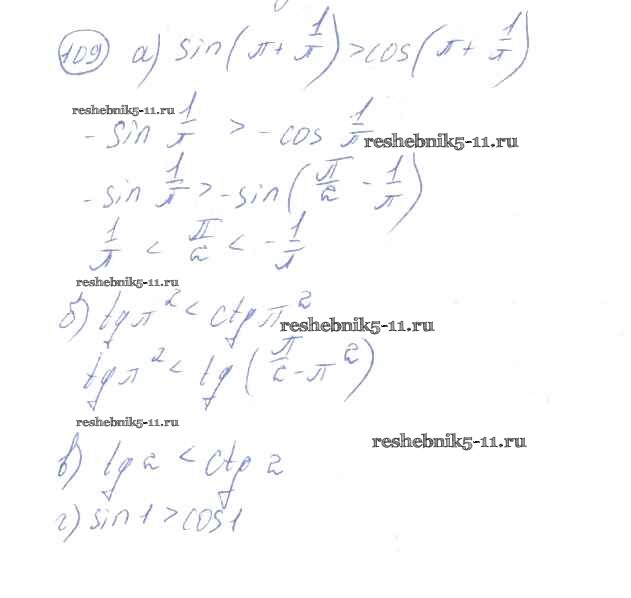 109 а) sin(π + 1/π) > cos(π + 1/π)
reshebnik5-11.ru
- sin 1/π > - cos 1/π
reshebnik5-11.ru
- sin 1/π > - sin(π/2 - 1/π)
1/π < π/2 < - 1/π
reshebnik5-11.ru
б) tg π² < ctg π²
reshebnik5-11.ru
tg π² < tg(π/2 - π²)
reshebnik5-11.ru
reshebnik5-11.ru
в) tg 2 < ctg 2
г) sin 1 > cos 1